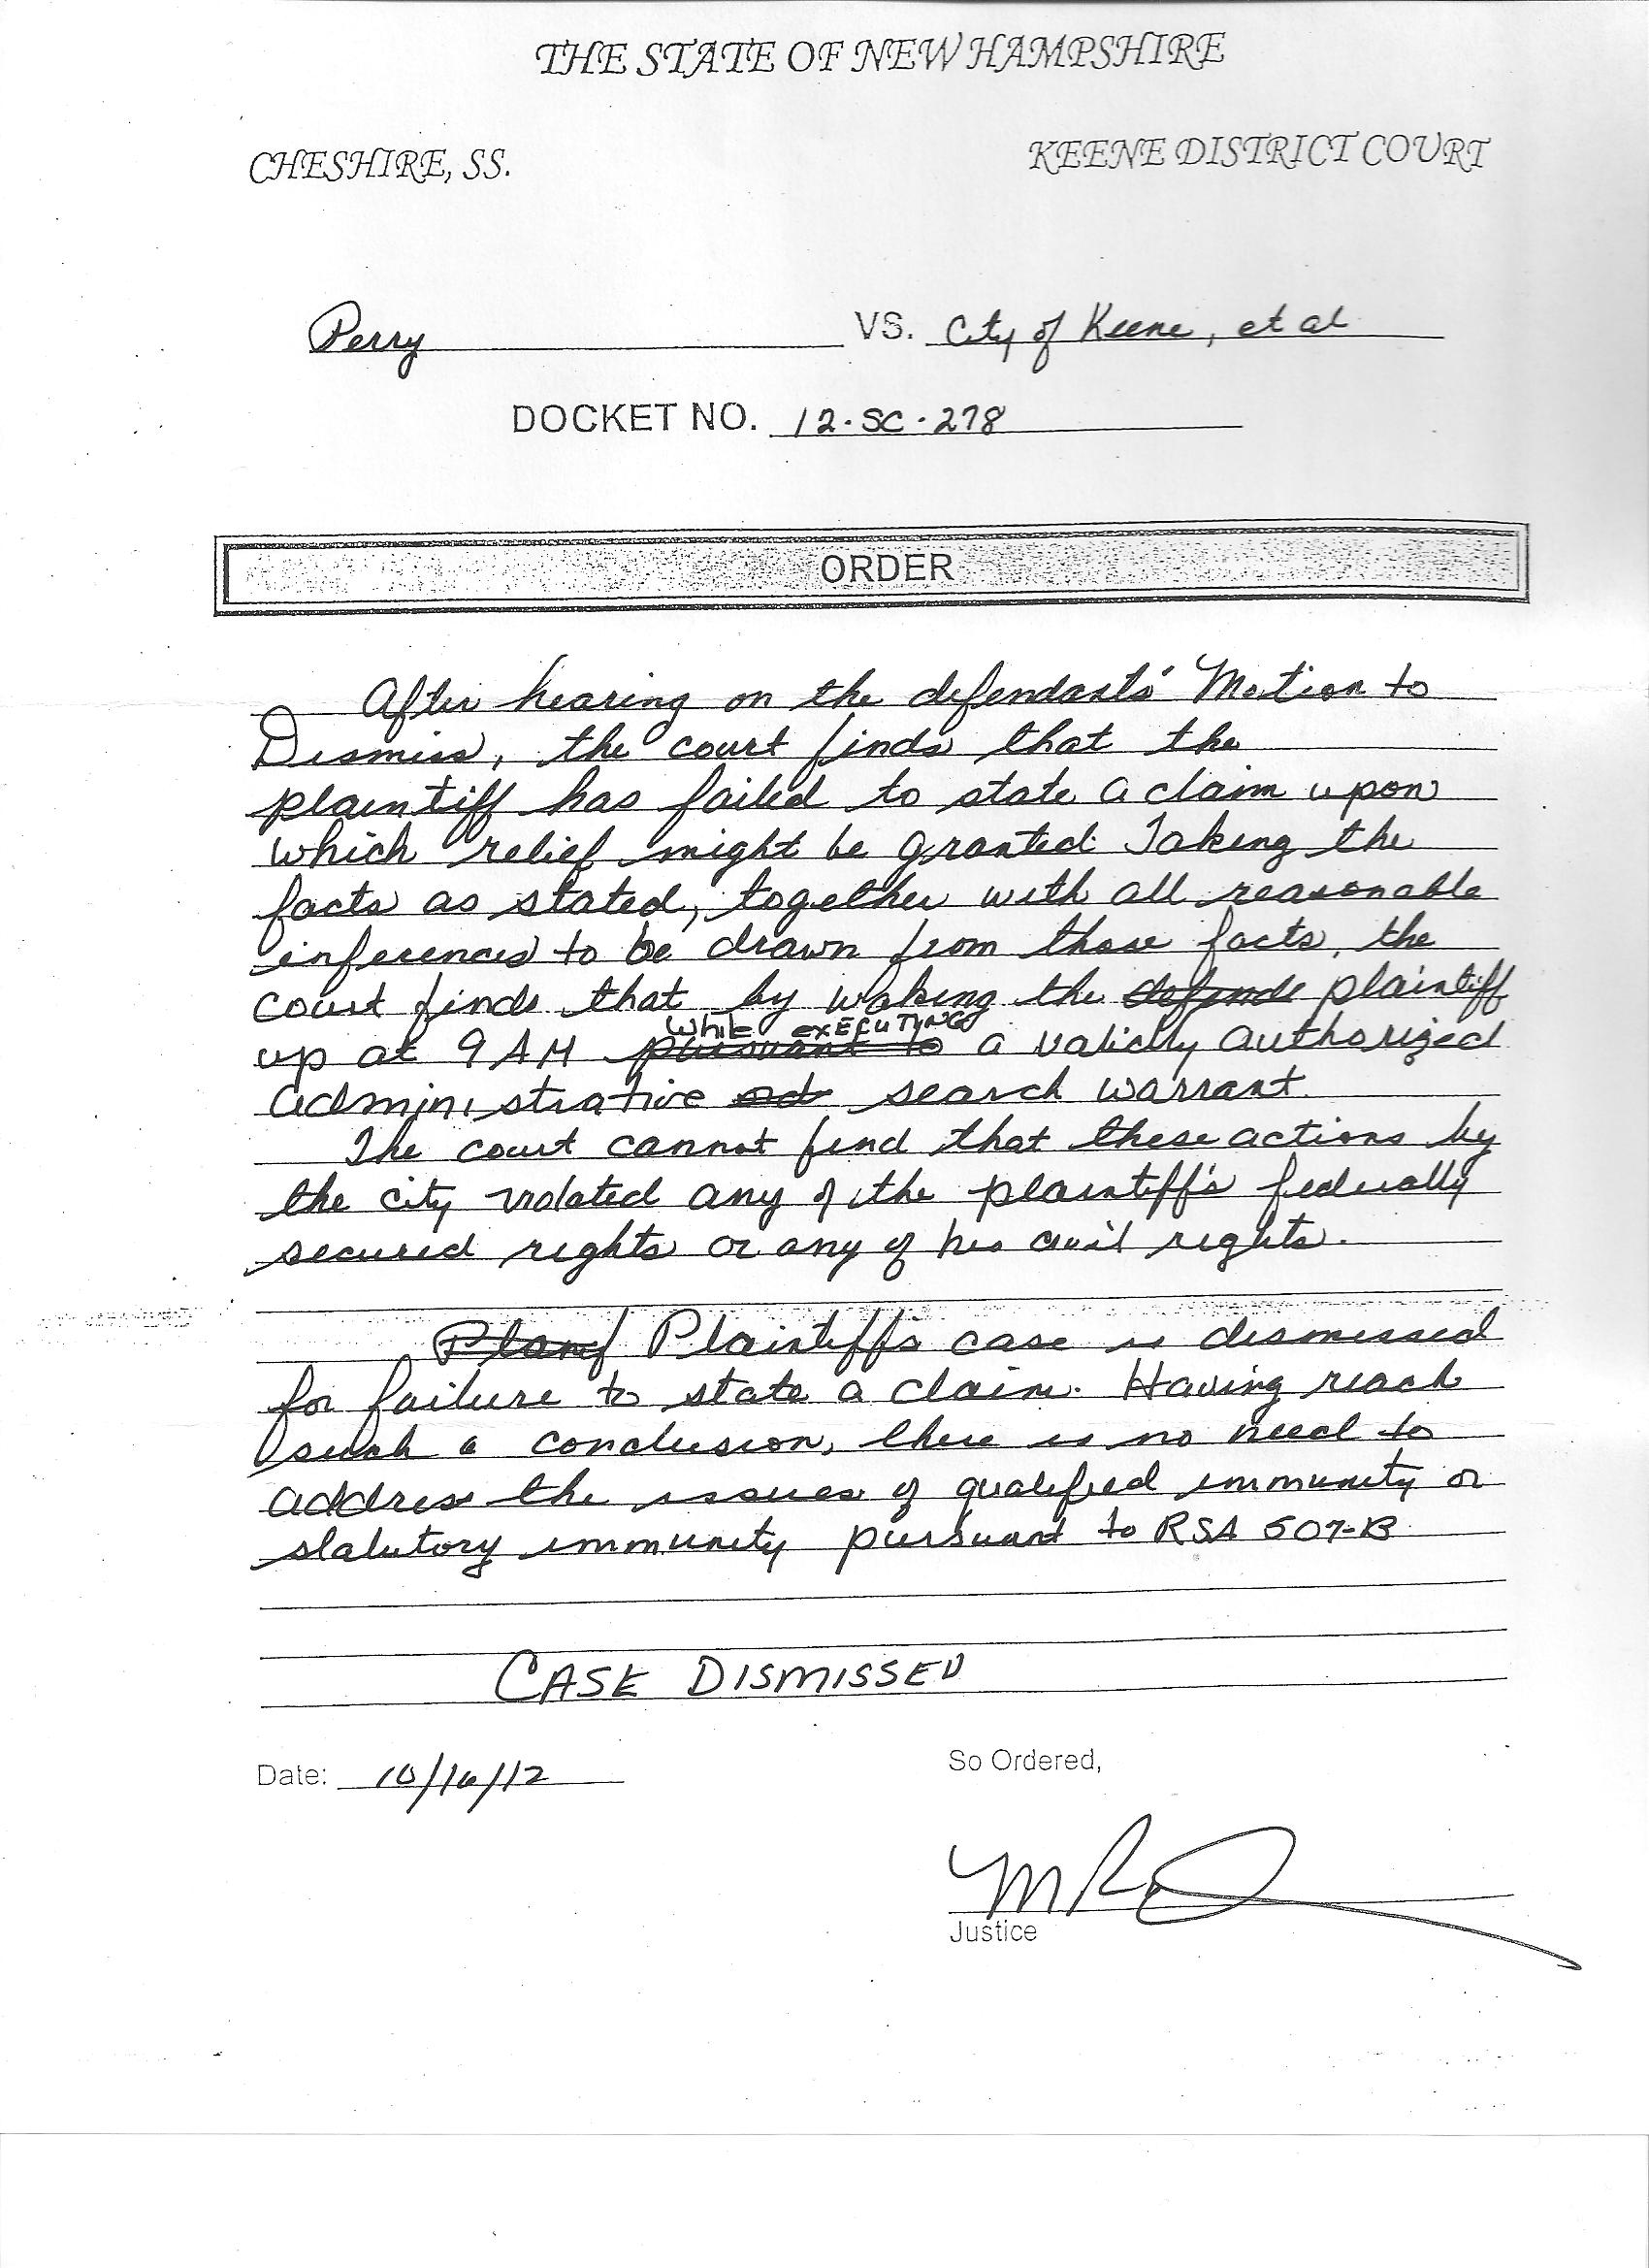 THE STATE OF NEW HAMPSHIRE
CHESHIRE, SS. KEENE DISTRICT COURT
Perry VS. City of Keene, et al
DOCKET NO. 12-SC-278
ORDER
After hearing on the defendants' Motion to
Dismiss, the court finds that the
plaintiff has failed to state a claim upon
which relief might be granted. Taking the
facts as stated, together with all reasonable
inferences to be drawn from those facts, the
court finds that by waking the defends plaintiff
while executing
up at 9 AM pursuant to a validly authorized
administrative search warrant.
The court cannot find that these actions by
the city violated any of the plaintiff's federally
secured rights or any of his civil rights.
Planf Plaintiffs case is dismissed
for failure to state a claim. Having reach
such a conclusion, there is no need to
address the issues of qualified immunity or
statutory immunity pursuant to RSA 507-B
CASE DISMISSED
Date: 10/16/12 So Ordered,
Justice